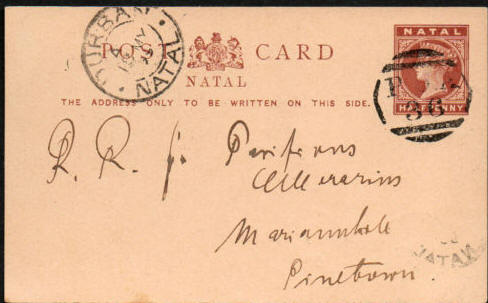 DURBAN
NATAL
POST CARD
NATAL
NATAL
HALFPENNY
36
THE ADDRESS ONLY TO BE WRITTEN ON THIS SIDE.
R. R.
Mariannhill
Pinetown.
NATAL